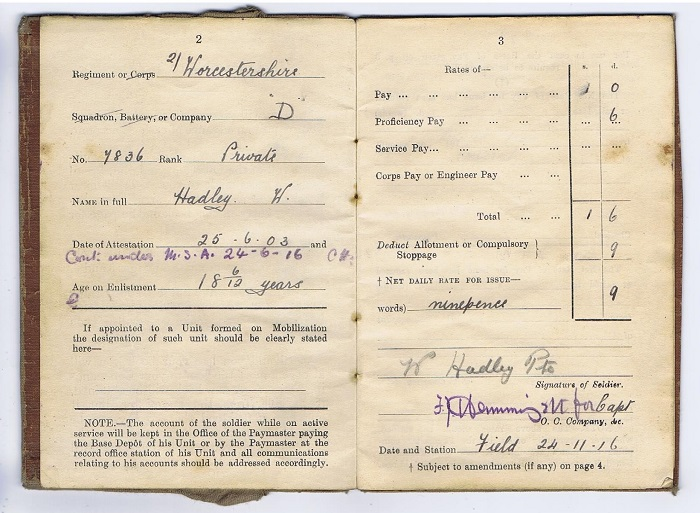 2
Regiment or Corps 2/ Worcestershire
Squadron, Battery, or Company "D"
No. 7836 Rank Private
NAME in full Hadley. W.
Date of Attestation 25-6-03 and
Cont: under M.S.A. 24-6-16
Age on Enlistment 18 6/12 years
If appointed to a Unit formed on Mobilization
the designation of such unit should be clearly stated
here—
NOTE.—The account of the soldier while on active
service will be kept in the Office of the Paymaster paying
the Base Depôt of his Unit or by the Paymaster at the
record office station of his Unit and all communications
relating to his accounts should be addressed accordingly.
3
Rates of— s. d.
Pay ... ... ... ... ... ... 1 0
Proficiency Pay ... ... ... ... 6
Service Pay... ... ... ... ... ... ...
Corps Pay or Engineer Pay ... ...
Total ... ... 1 6
Deduct Allotment or Compulsory
Stoppage } 9
† NET DAILY RATE FOR ISSUE—
words) ninepence 9
W Hadley Pte
Signature of Soldier.
Lt for Capt
O. C. Company, &c.
Date and Station Field 24-11-16
† Subject to amendments (if any) on page 4.